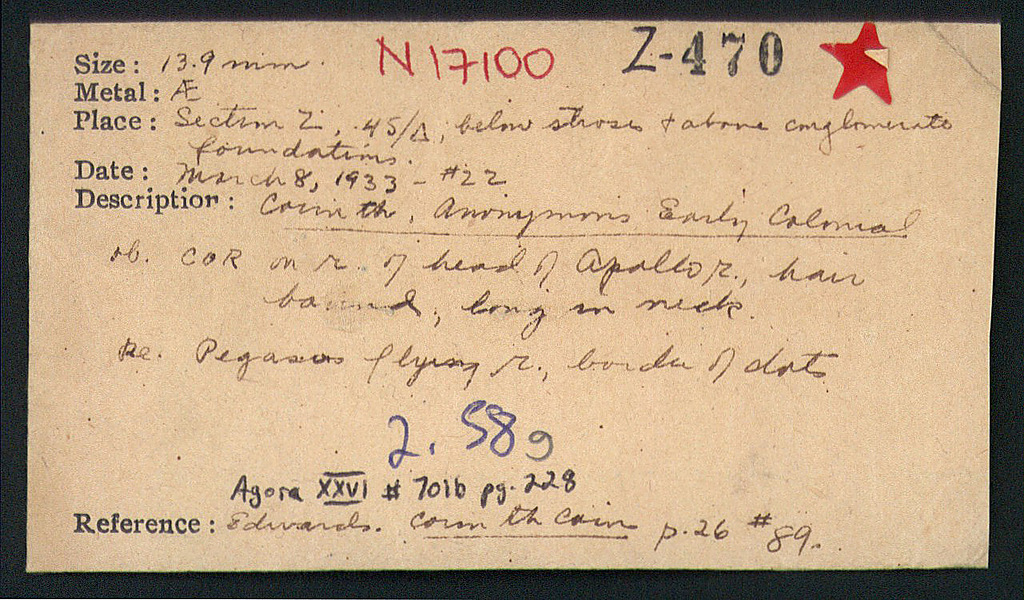 N 17100 Z-470
Size: 13.9 mm.
Metal: Æ
Place: Section Z, 45/Δ, below stroses + above conglomerate
foundations.
Date: March 8, 1933 - #22
Description: Corinth, Anonymous Early Colonial
ob. COR on r. of head of Apollo r., hair
bound, long in neck.
Re. Pegasus flying r., border of dots
2.58g
Agora XXVI # 701b pg. 228
Reference: Edwards. Corinth Coins p. 26 #89.